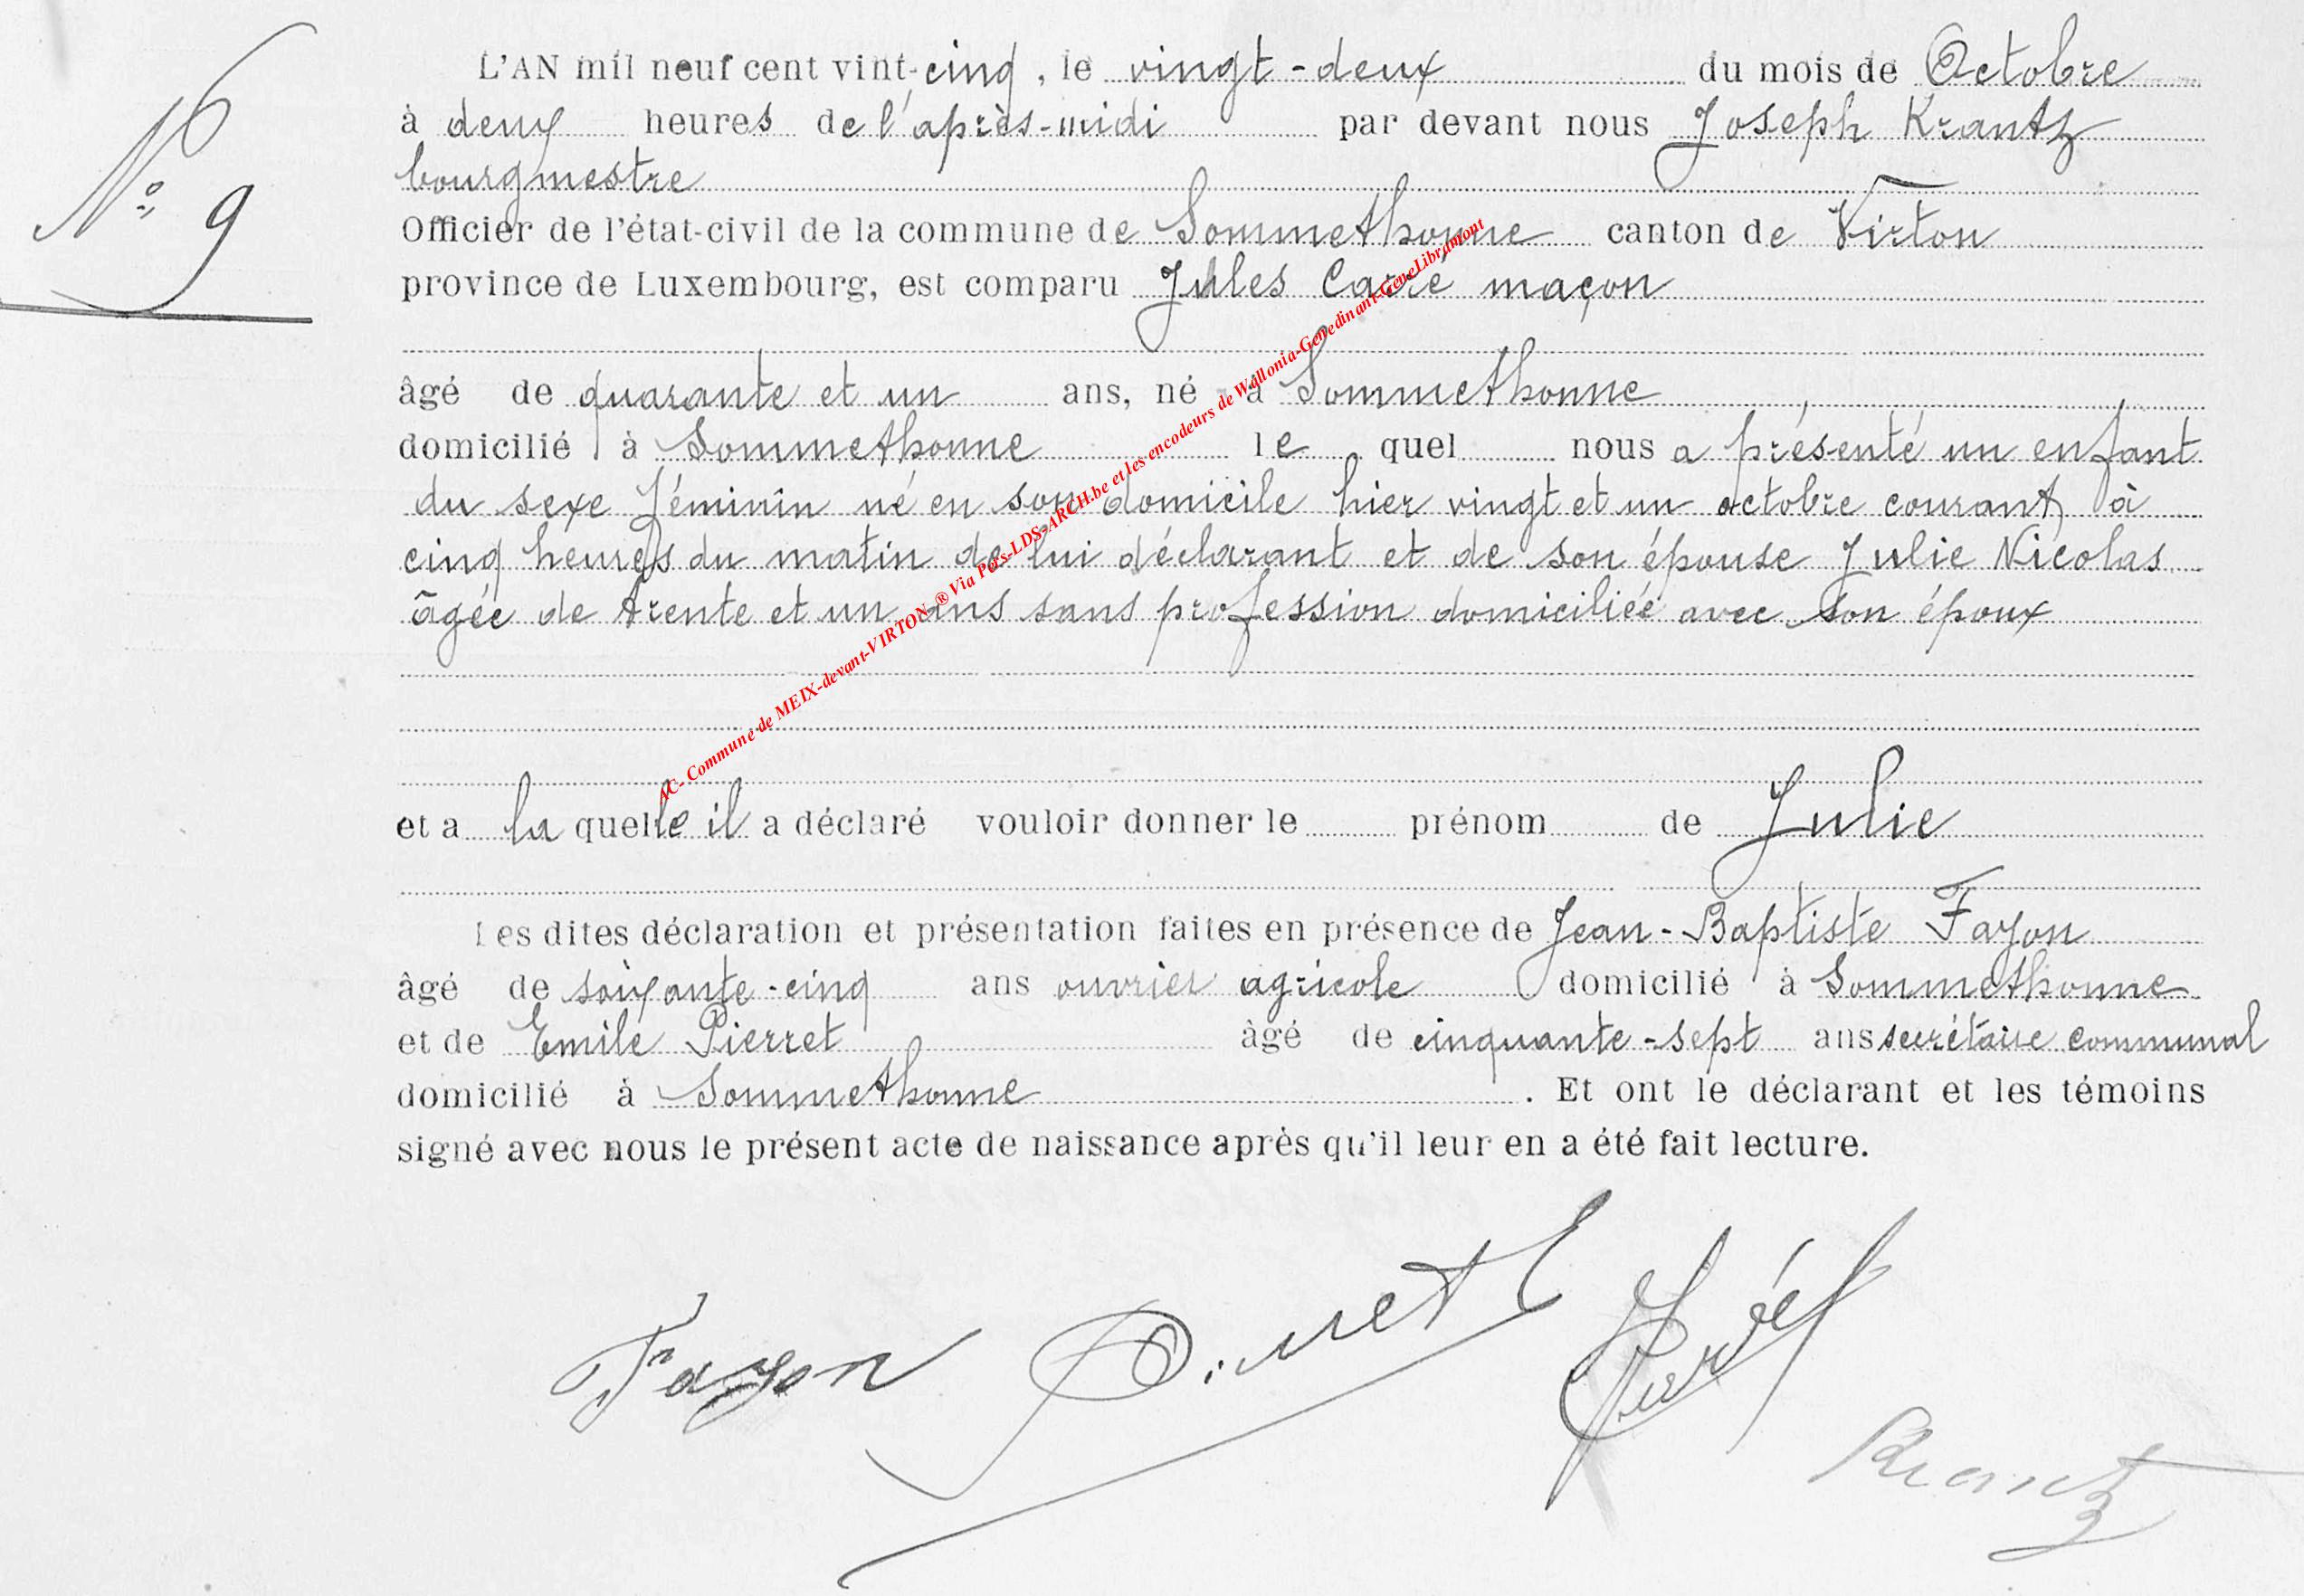 L'AN mil neuf cent vint-cinq, le vingt-deux du mois de Octobre
à deux heures de l'après-midi par devant nous Joseph Krantz
bourgmestre
N° 9
Officier de l'état-civil de la commune de Sommethonne canton de Virton
province de Luxembourg, est comparu Jules Carré maçon
âgé de quarante et un ans, né à Sommethonne
domicilié à Sommethonne le quel nous a présenté un enfant
du sexe féminin né en son domicile hier vingt et un octobre courant, à
cinq heures du matin de lui déclarant et de son épouse Julie Nicolas
âgée de trente et un ans sans profession domiciliée avec son époux
et a la quelle il a déclaré vouloir donner le prénom de Julie
Les dites déclaration et présentation faites en présence de Jean-Baptiste Fayon
âgé de soixante-cinq ans ouvrier agricole domicilié à Sommethonne
et de Emile Pierret âgé de cinquante-sept ans secrétaire communal
domicilié à Sommethonne. Et ont le déclarant et les témoins
signé avec nous le présent acte de naissance après qu'il leur en a été fait lecture.
AC- Commune de MEIX-devant-VIRTON ® Via Pers-LDS-ARCH.be et les encodeurs de Wallonia-Genedinant-GeneLibramont
Fayon
Krantz